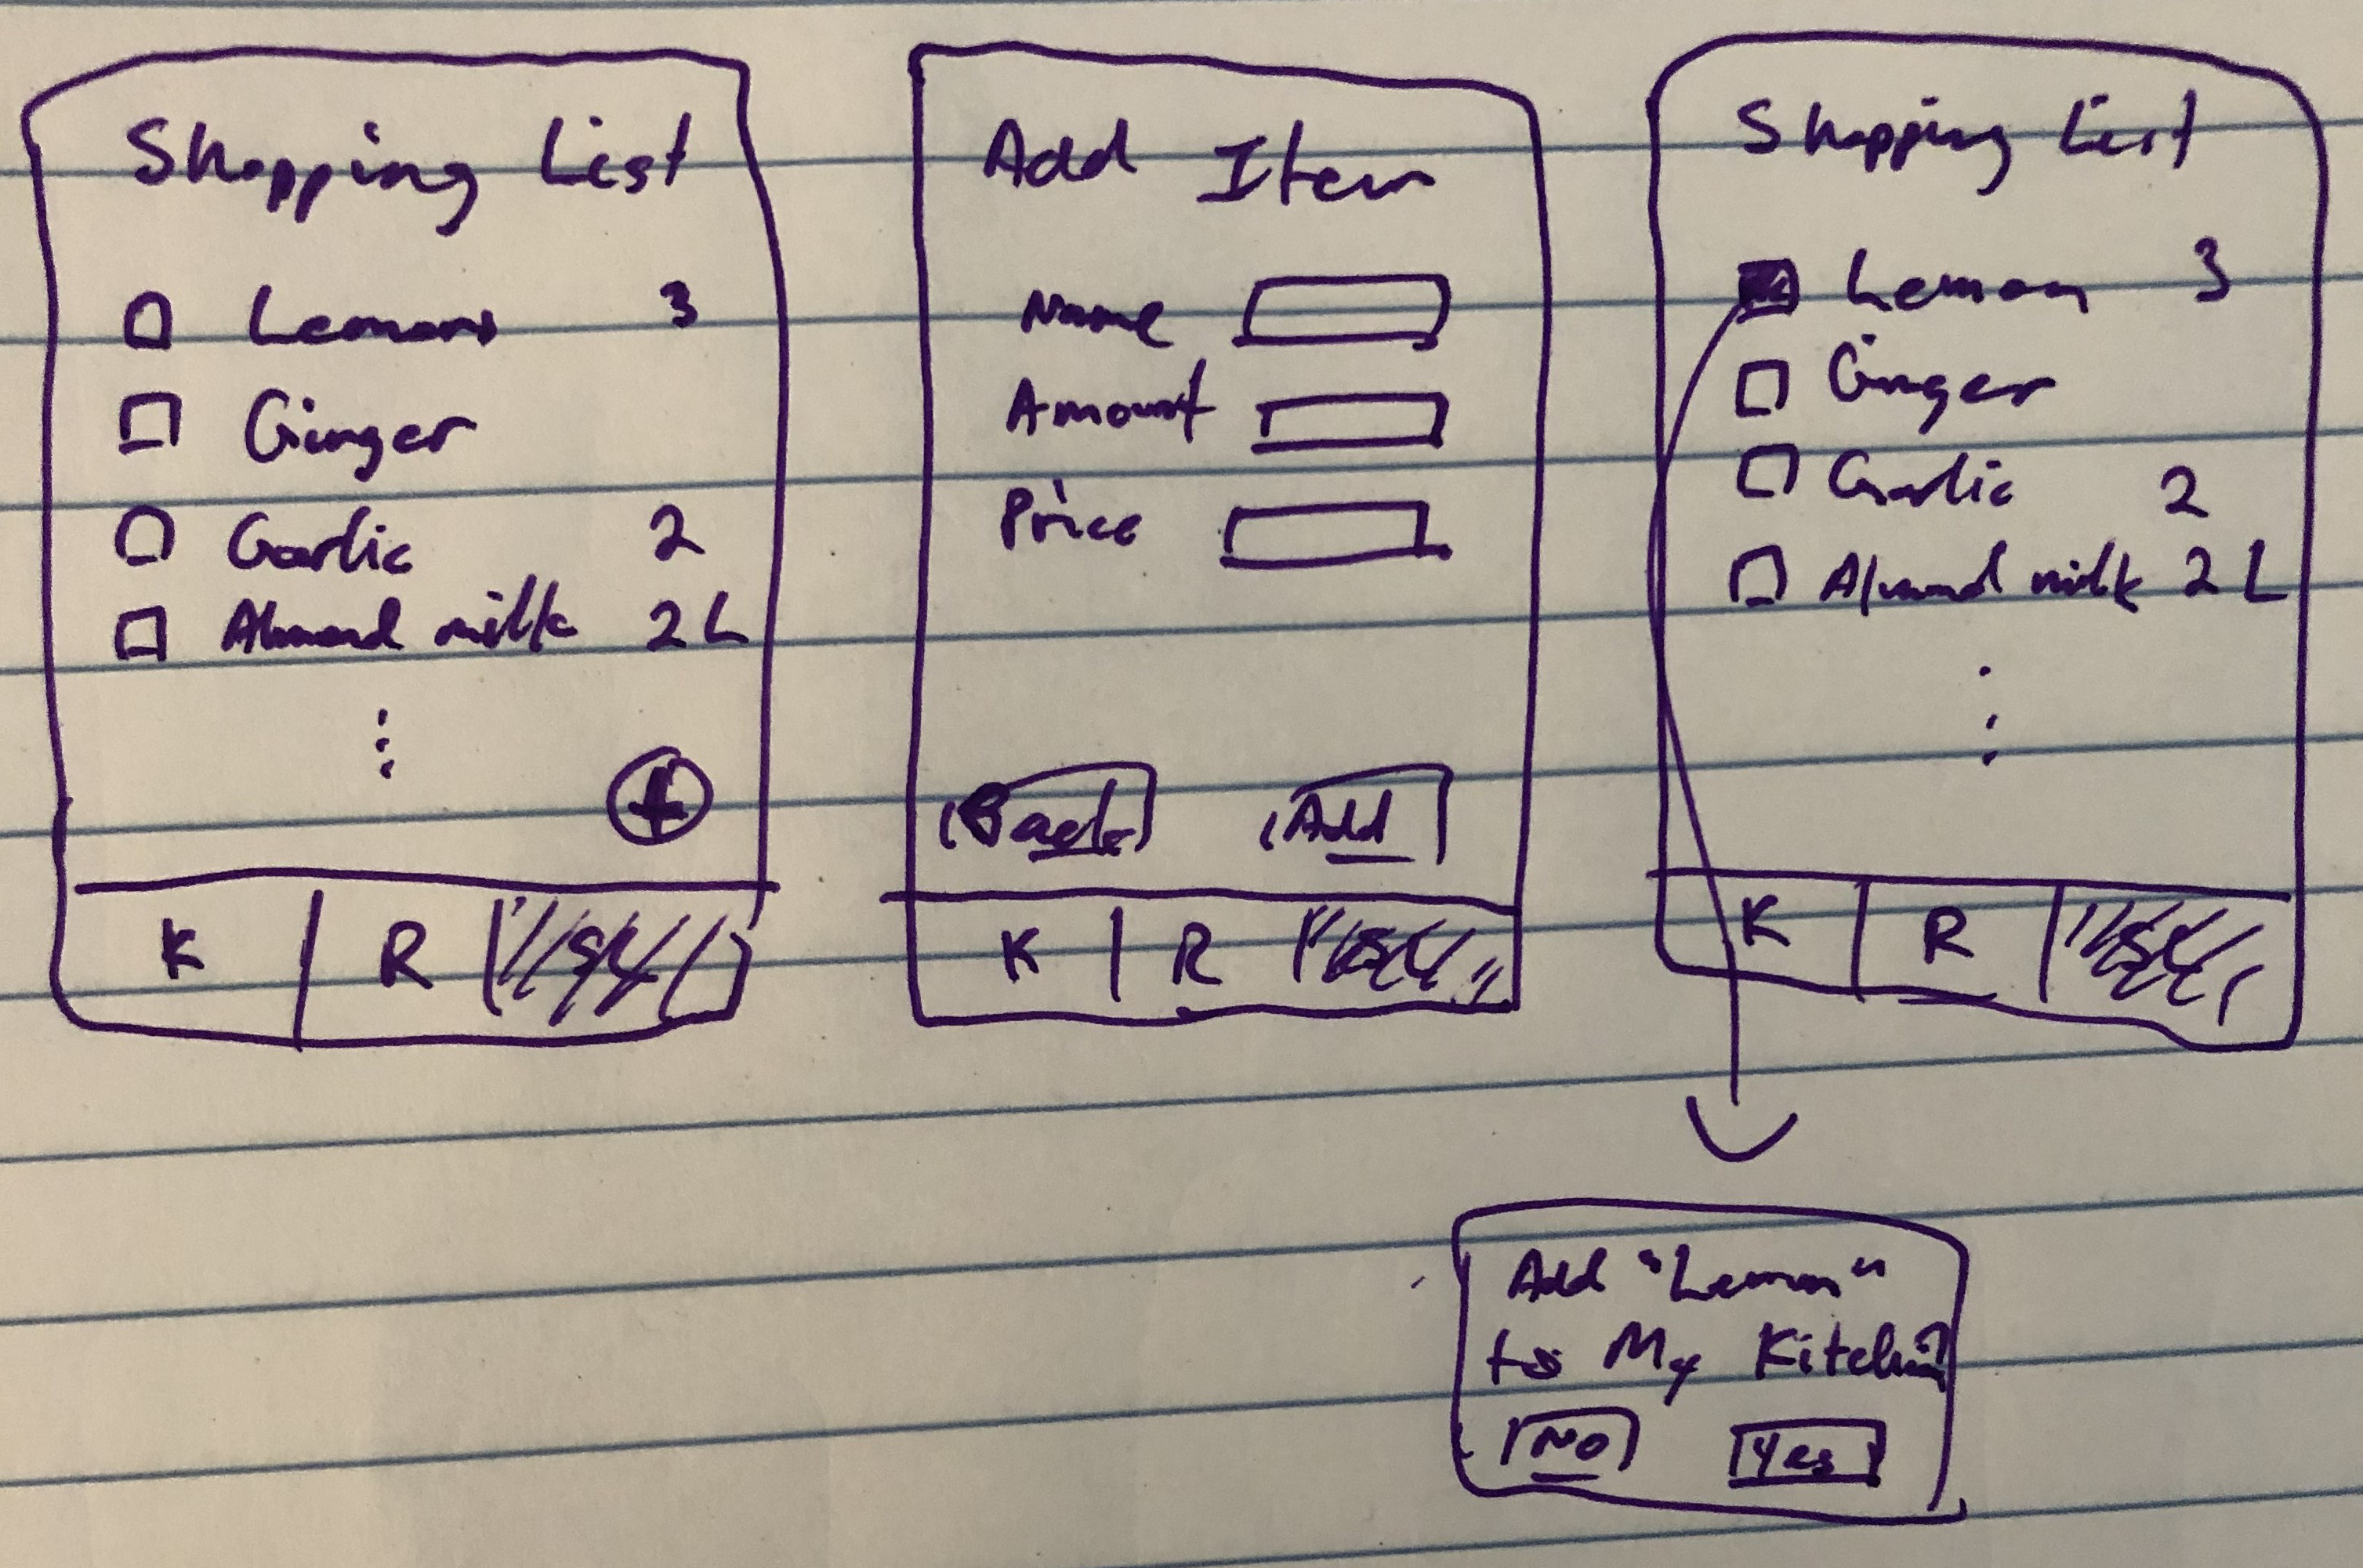 Shopping List
Lemons 3
Ginger
Garlic 2
Almond milk 2 L
K R S
Add Item
Name
Amount
Price
Back Add
K R S
Shopping List
Lemon 3
Ginger
Garlic 2
Almond milk 2 L
K R S
Add "Lemon"
to My Kitchen?
No Yes